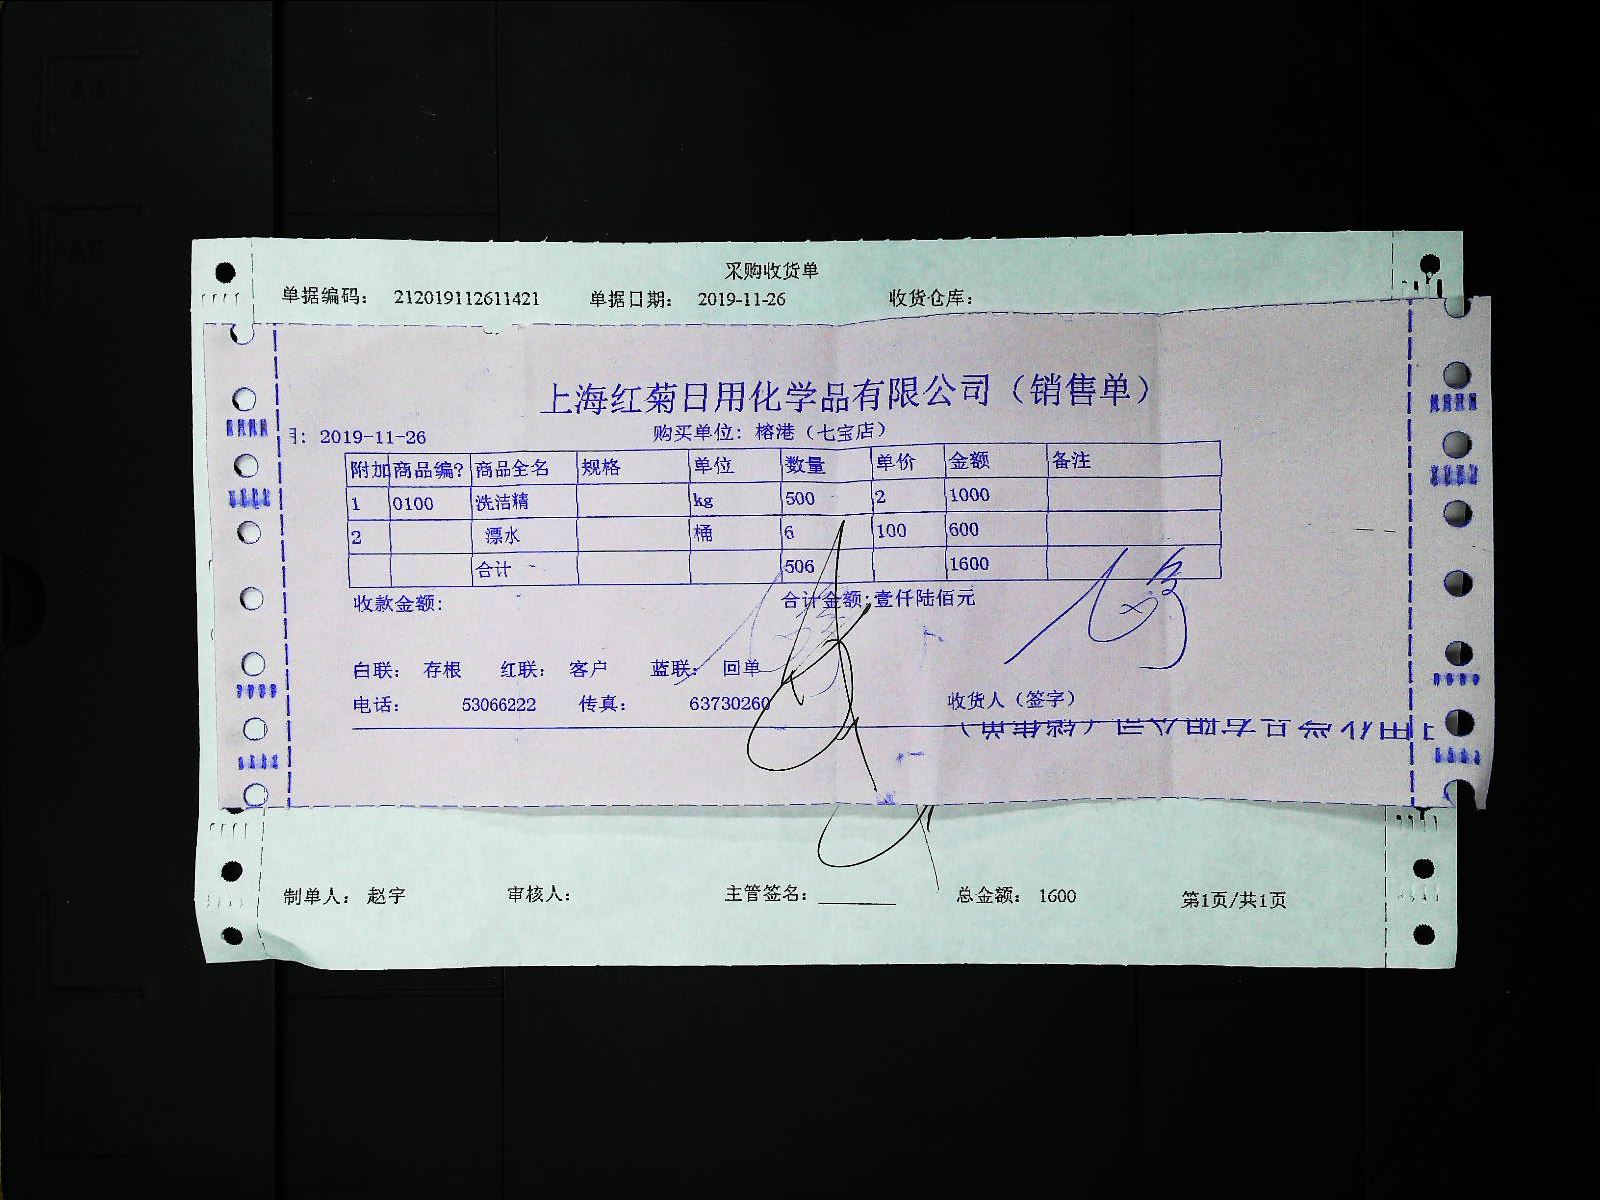 采购收货单
单据编码： 212019112611421 单据日期： 2019-11-26 收货仓库：
上海红菊日用化学品有限公司（销售单）
月: 2019-11-26 购买单位: 榕港（七宝店）
附加 商品编? 商品全名 规格 单位 数量 单价 金额 备注
1 0100 洗洁精 kg 500 2 1000
2 漂水 桶 6 100 600
合计 506 1600
收款金额: 合计金额:壹仟陆佰元
白联： 存根 红联： 客户 蓝联： 回单
电话： 53066222 传真： 63730260 收货人（签字）
制单人： 赵宇 审核人： 主管签名： 总金额： 1600 第1页/共1页